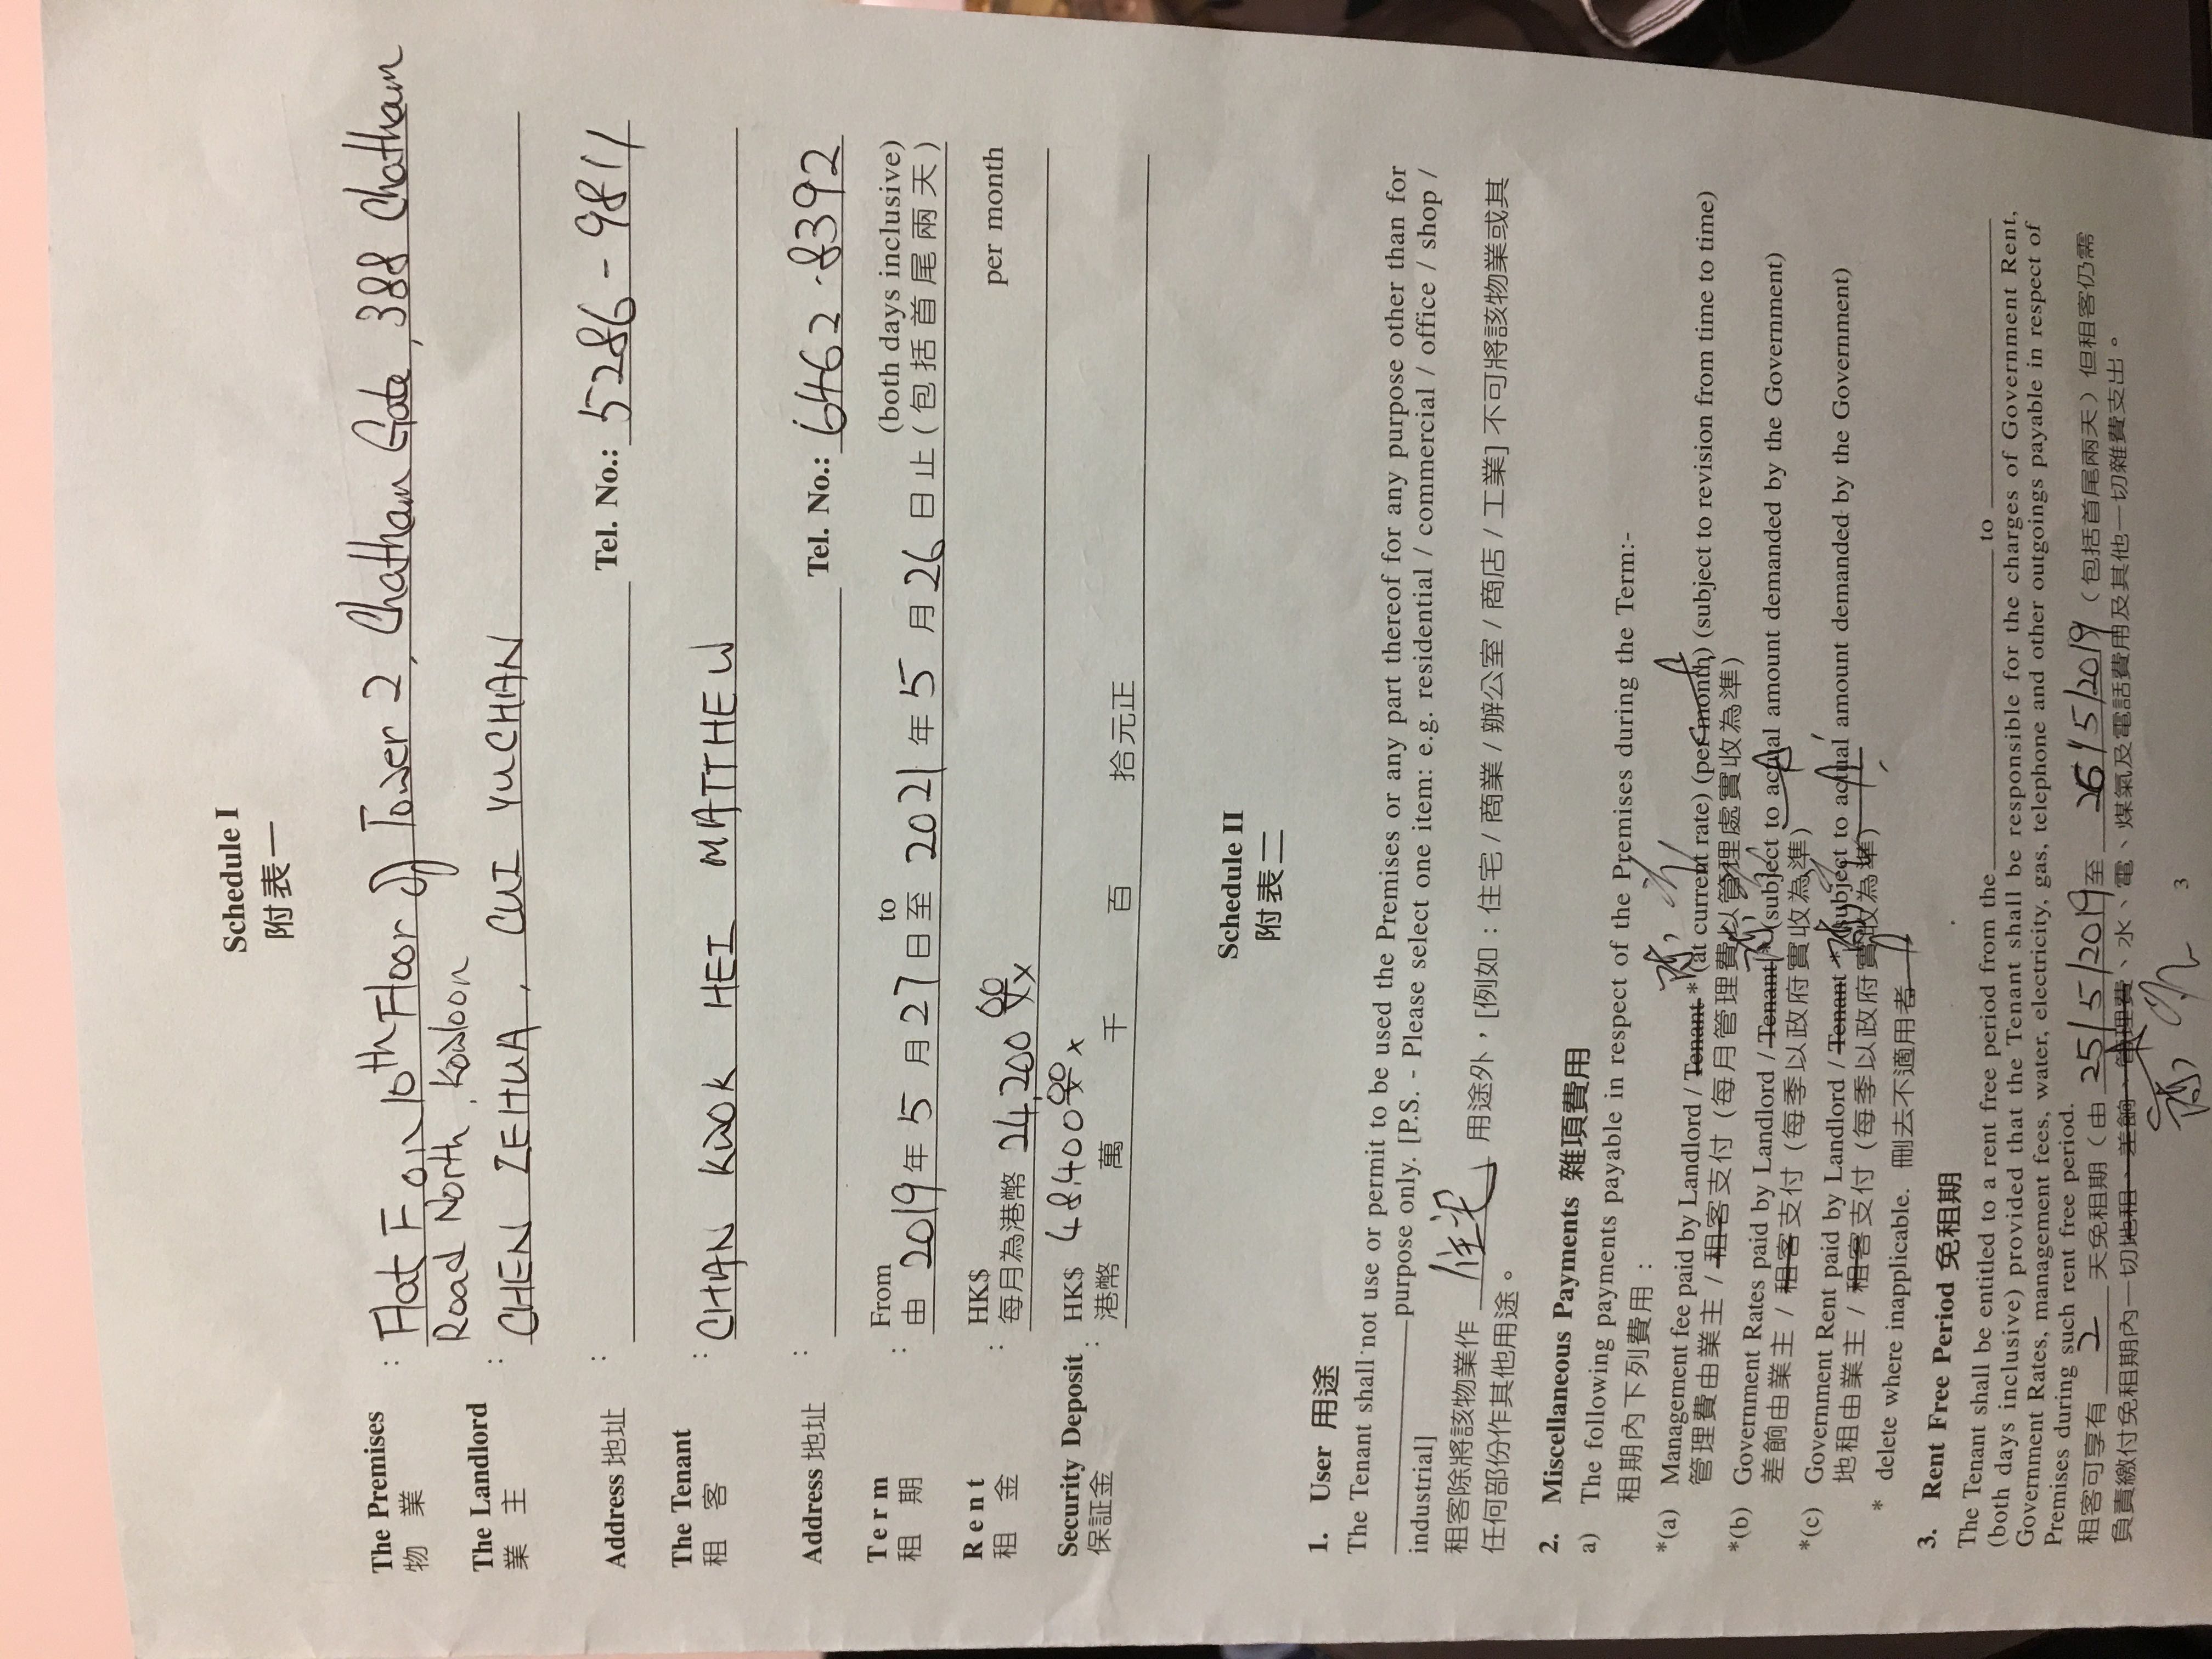 Schedule I
附表一
The Premises : Flat F on 10th Floor of Tower 2, Chatham Gate, 388 Chatham
物 業 Road North, Kowloon
The Landlord : CHEN ZEHUA, CUI YUCHAN
業 主
Address 地址 : Tel. No.: 5286-9811
The Tenant : CHAN KWOK HEI MATTHEW
租 客
Address 地址 : Tel. No.: 6462-8392
Term : From to (both days inclusive)
租 期 由 2019 年 5 月 27 日至 2021 年 5 月 26 日止 (包括首尾兩天)
Rent : HK$ per month
租 金 每月為港幣 24,200 00/xx
Security Deposit : HK$ 48,400 00/xx
保証金 港幣 萬 千 百 拾元正
Schedule II
附表二
1. User 用途
The Tenant shall not use or permit to be used the Premises or any part thereof for any purpose other than for
purpose only. [P.S. - Please select one item: e.g. residential / commercial / office / shop /
industrial]
租客除將該物業作 住宅 用途外，[例如：住宅 / 商業 / 辦公室 / 商店 / 工業] 不可將該物業或其
任何部份作其他用途。
2. Miscellaneous Payments 雜項費用
a) The following payments payable in respect of the Premises during the Term:-
租期內下列費用：
*(a) Management fee paid by Landlord / Tenant *(at current rate) (per month) (subject to revision from time to time)
管理費由業主 / 租客支付 (每月管理費以管理處實收為準)
*(b) Government Rates paid by Landlord / Tenant *(subject to actual amount demanded by the Government)
差餉由業主 / 租客支付 (每季以政府實收為準)
*(c) Government Rent paid by Landlord / Tenant *(subject to actual amount demanded by the Government)
地租由業主 / 租客支付 (每季以政府實收為準)
* delete where inapplicable. 刪去不適用者
3. Rent Free Period 免租期
The Tenant shall be entitled to a rent free period from the to
(both days inclusive) provided that the Tenant shall be responsible for the charges of Government Rent,
Government Rates, management fees, water, electricity, gas, telephone and other outgoings payable in respect of
Premises during such rent free period.
租客可享有 2 天免租期 (由 25/5/2019 至 26/5/2019 (包括首尾兩天) 但租客仍需
負責繳付免租期內一切地租、差餉、管理費、水、電、煤氣及電話費用及其他一切雜費支出。
3